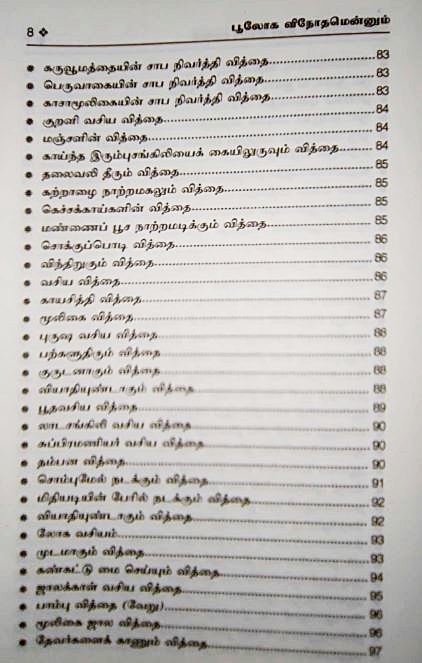 8 ❖ பூலோக வினோதமென்னும்
கருவூமத்தையின் சாப நிவர்த்தி வித்தை 83
பெருவாகையின் சாப நிவர்த்தி வித்தை 83
காசாமூலிகையின் சாப நிவர்த்தி வித்தை 83
குறளி வசிய வித்தை 84
மஞ்சளின் வித்தை 84
காய்ந்த இரும்புசங்கிலியைக் கையிலுருவும் வித்தை 84
தலைவலி தீரும் வித்தை 85
கற்றாழை நாற்றமகலும் வித்தை 85
கெச்சக்காய்களின் வித்தை 85
மண்ணைப் பூச நாற்றமடிக்கும் வித்தை 85
சொக்குப்பொடி வித்தை 86
விந்திறுகும் வித்தை 86
வசிய வித்தை 86
காயசித்தி வித்தை 87
மூலிகை வித்தை 87
புருஷ வசிய வித்தை 88
பற்களுதிரும் வித்தை 88
குருடனாகும் வித்தை 88
வியாதியுண்டாகும் வித்தை 88
பூதவசிய வித்தை 89
லாடசங்கிலி வசிய வித்தை 90
சுப்பிரமணியர் வசிய வித்தை 90
தம்பன வித்தை 90
சொம்புமேல் நடக்கும் வித்தை 91
மிதியடியின் பேரில் நடக்கும் வித்தை 92
வியாதியுண்டாகும் வித்தை 92
லோக வசியம் 93
முடமாகும் வித்தை 93
கண்கட்டு மை செய்யும் வித்தை 94
ஜாலக்கான் வசிய வித்தை 95
பாம்பு வித்தை (வேறு) 96
மூலிகை ஜால வித்தை 96
தேவர்களைக் காணும் வித்தை 97